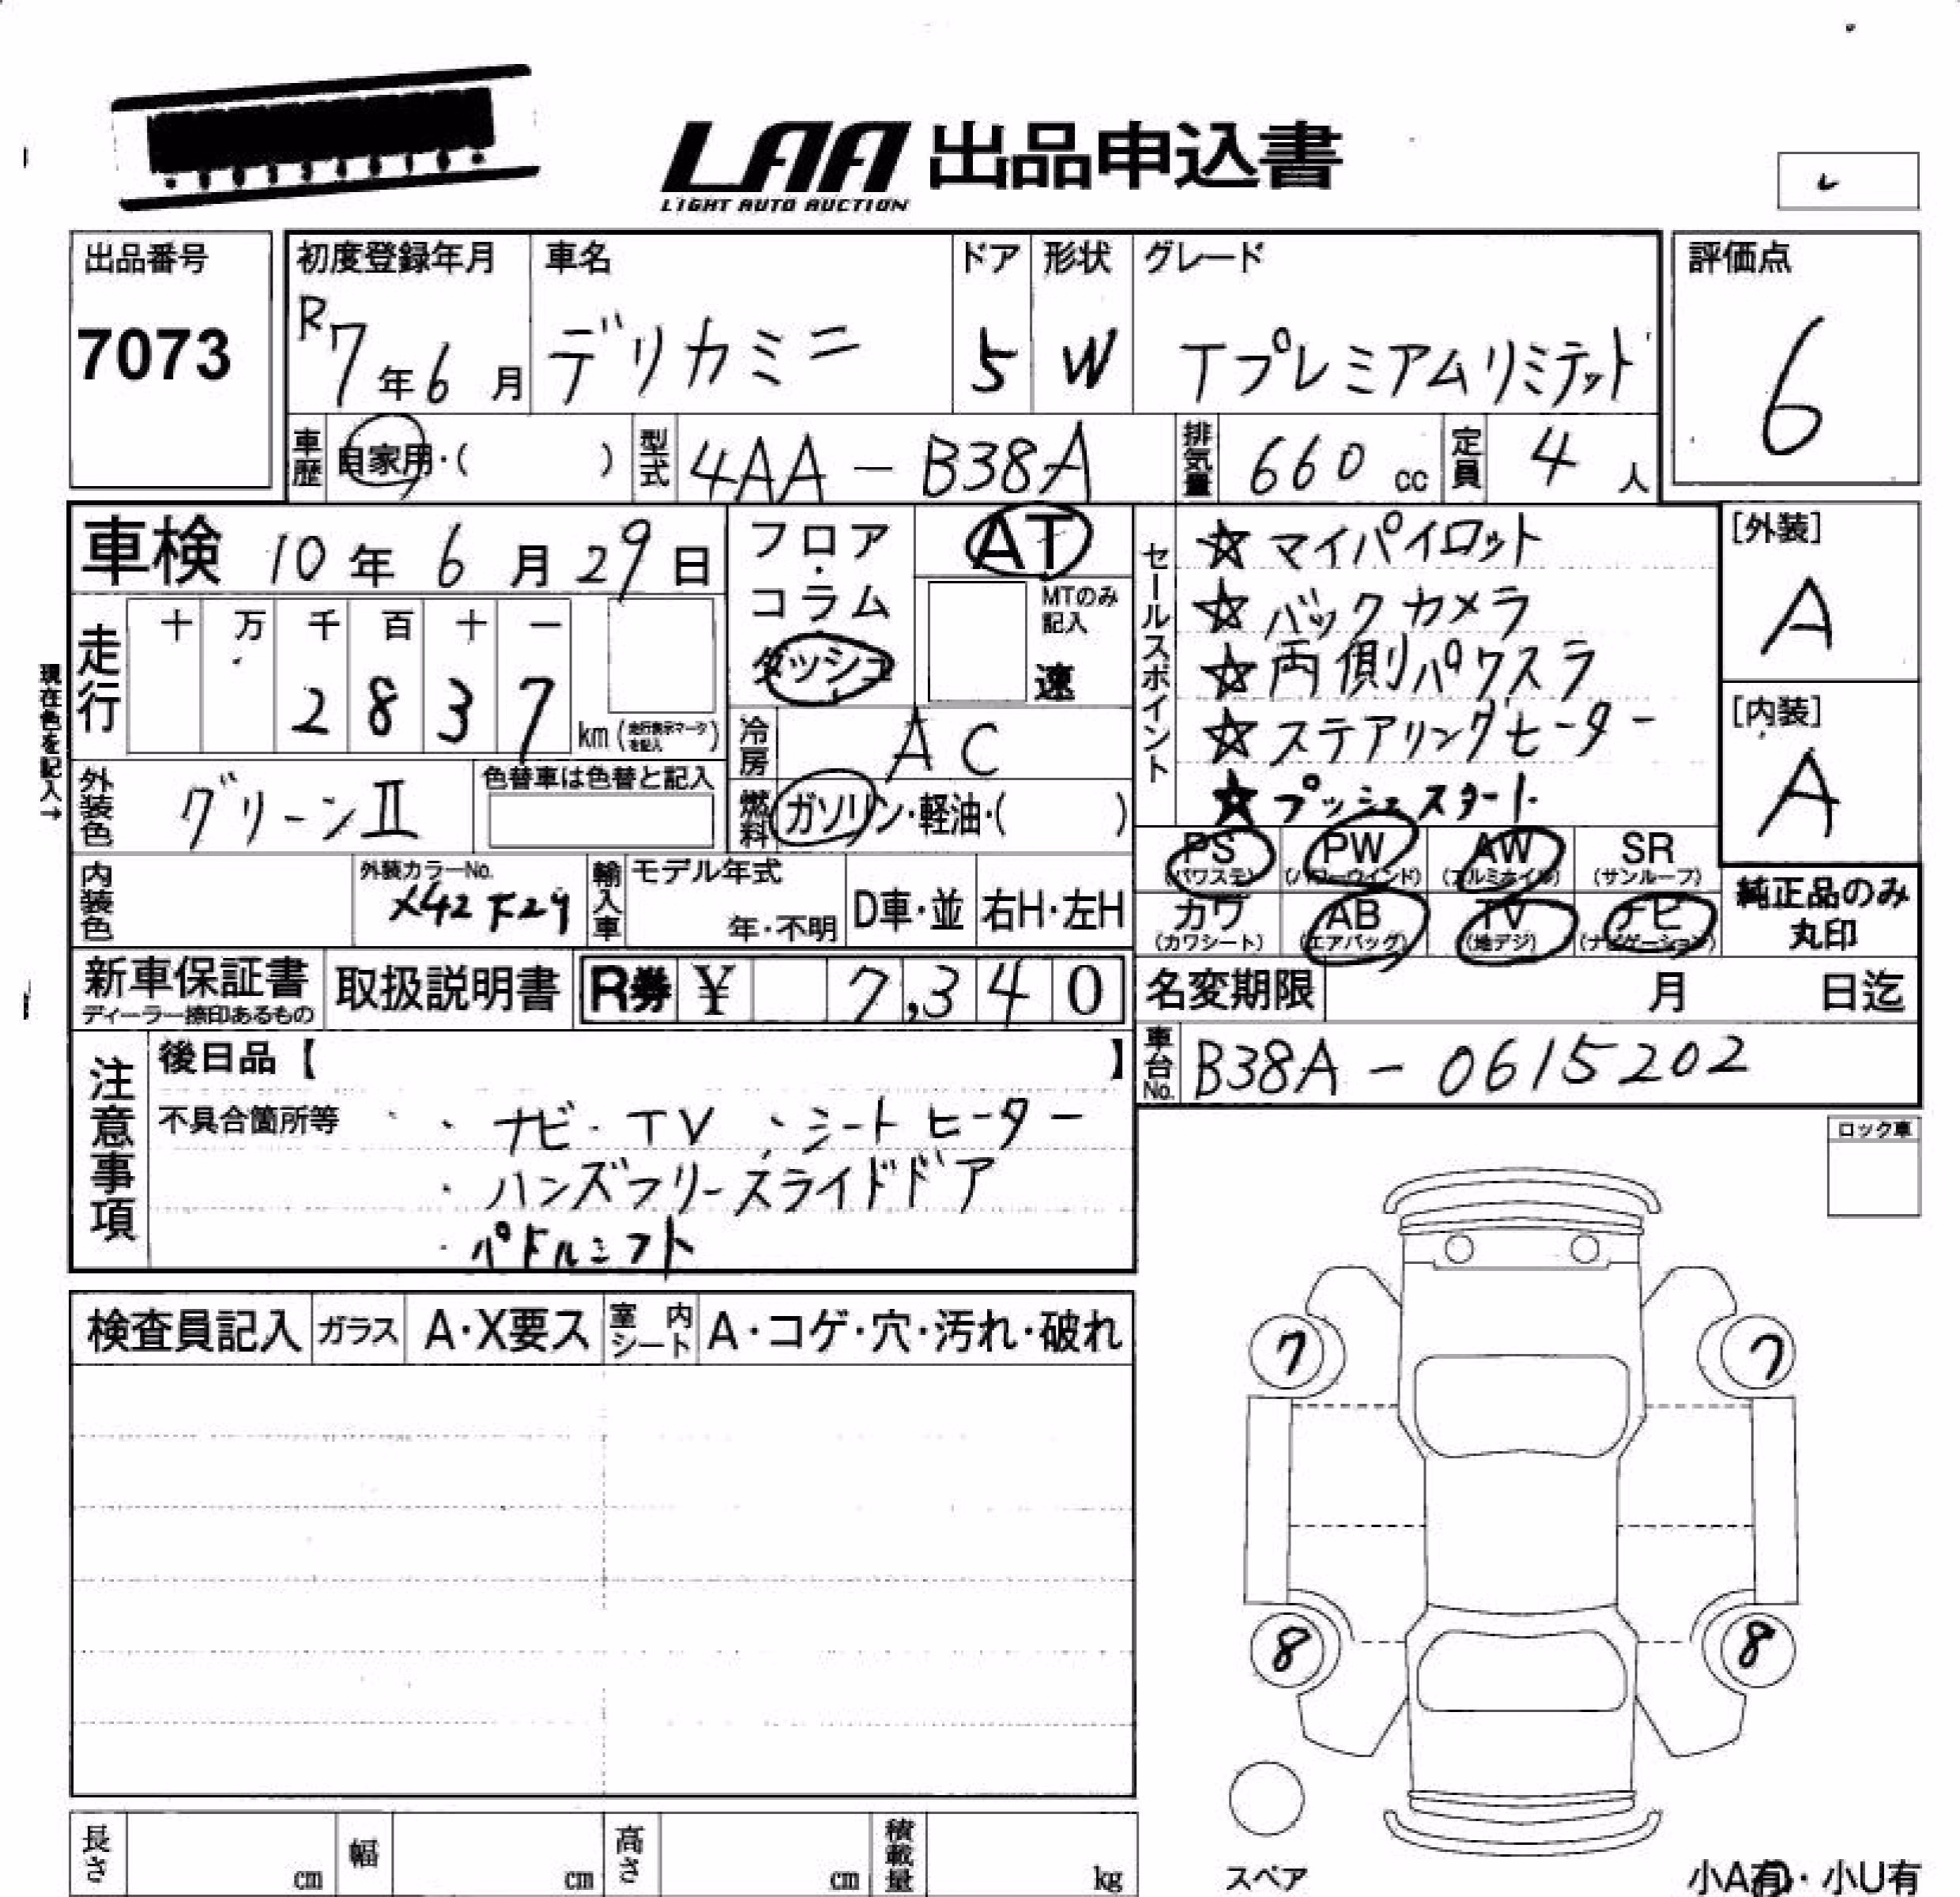 LAA 出品申込書
LIGHT AUTO AUCTION
出品番号
7073
初度登録年月
R7年6月
車名
デリカミニ
ドア
5
形状
W
グレード
Tプレミアムリミテット
評価点
6
車歴
自家用・( )
型式
4AA-B38A
排気量
660 cc
定員
4人
車検 10年6月29日
走行
十 万 千 百 十 一
2 8 3 7
km (走行表示マークを記入)
現在色を記入→
外装色
グリーンⅡ
色替車は色替と記入
フロア・コラム
ダッシュ
AT
MTのみ記入
速
冷房
AC
燃料
ガソリン・軽油・( )
セールスポイント
☆マイパイロット
☆バックカメラ
☆両側パワスラ
☆ステアリングヒーター
☆プッシュスタート
[外装]
A
[内装]
A
PS
(パワステ)
PW
(パワーウインド)
AW
(アルミホイル)
SR
(サンルーフ)
カワ
(カワシート)
AB
(エアバッグ)
TV
(地デジ)
ナビ
(ナビゲーション)
純正品のみ
丸印
内装色
外装カラーNo.
輸入車
モデル年式
年・不明
D車・並
右H・左H
新車保証書
ディーラー捺印あるもの
取扱説明書
R券 ¥ 7,340
名変期限 月 日迄
車台No.
B38A-0615202
注意事項
後日品【 】
不具合箇所等 ・ナビ・TV ・シートヒーター
・ハンズフリースライドドア
・パドルシフト
ロック車
検査員記入
ガラス
A・X要ス
室内シート
A・コゲ・穴・汚れ・破れ
7
7
8
8
スペア
長さ cm
幅 cm
高さ cm
積載量 kg
小A有・小U有